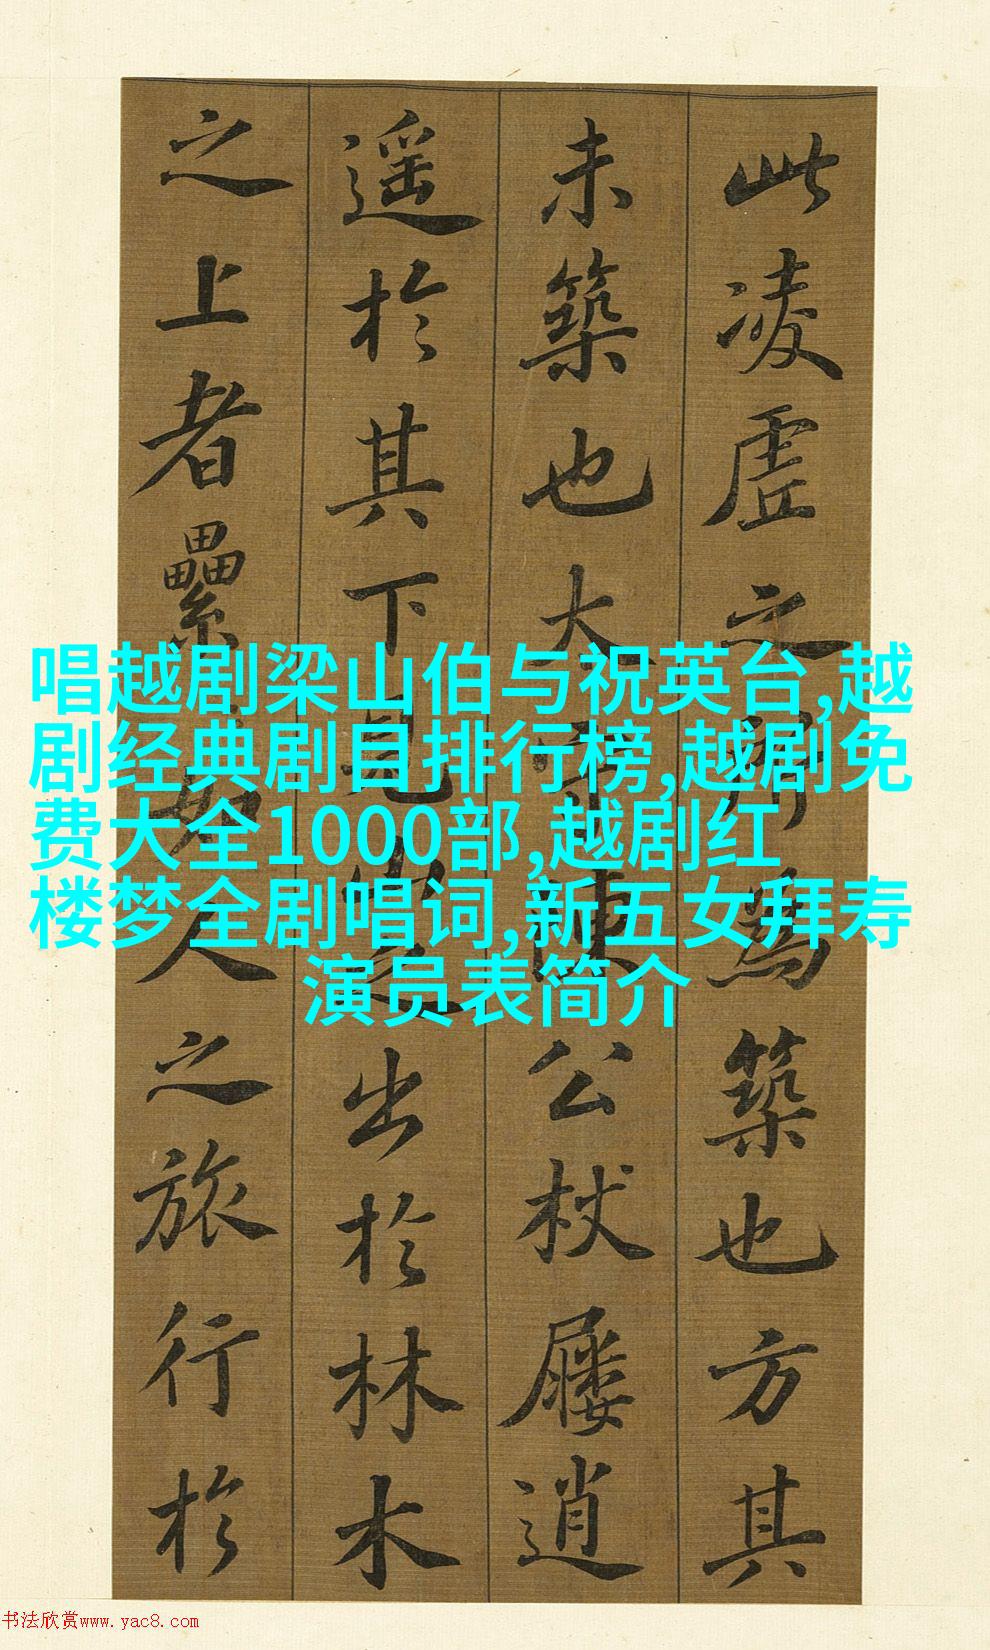 此凌虛之所爲築也方其
未築也大守陳公杖屨逍
遥於其下見山之出於林木
之上者纍如人之旅行於
唱越剧梁山伯与祝英台,越
剧经典剧目排行榜,越剧免
费大全1000部,越剧红
楼梦全剧唱词,新五女拜寿
演员表简介
书法欣赏www.yac8.com